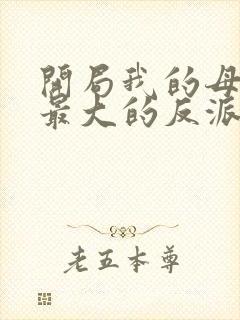 開局我的母
最大的反派
老五本尊